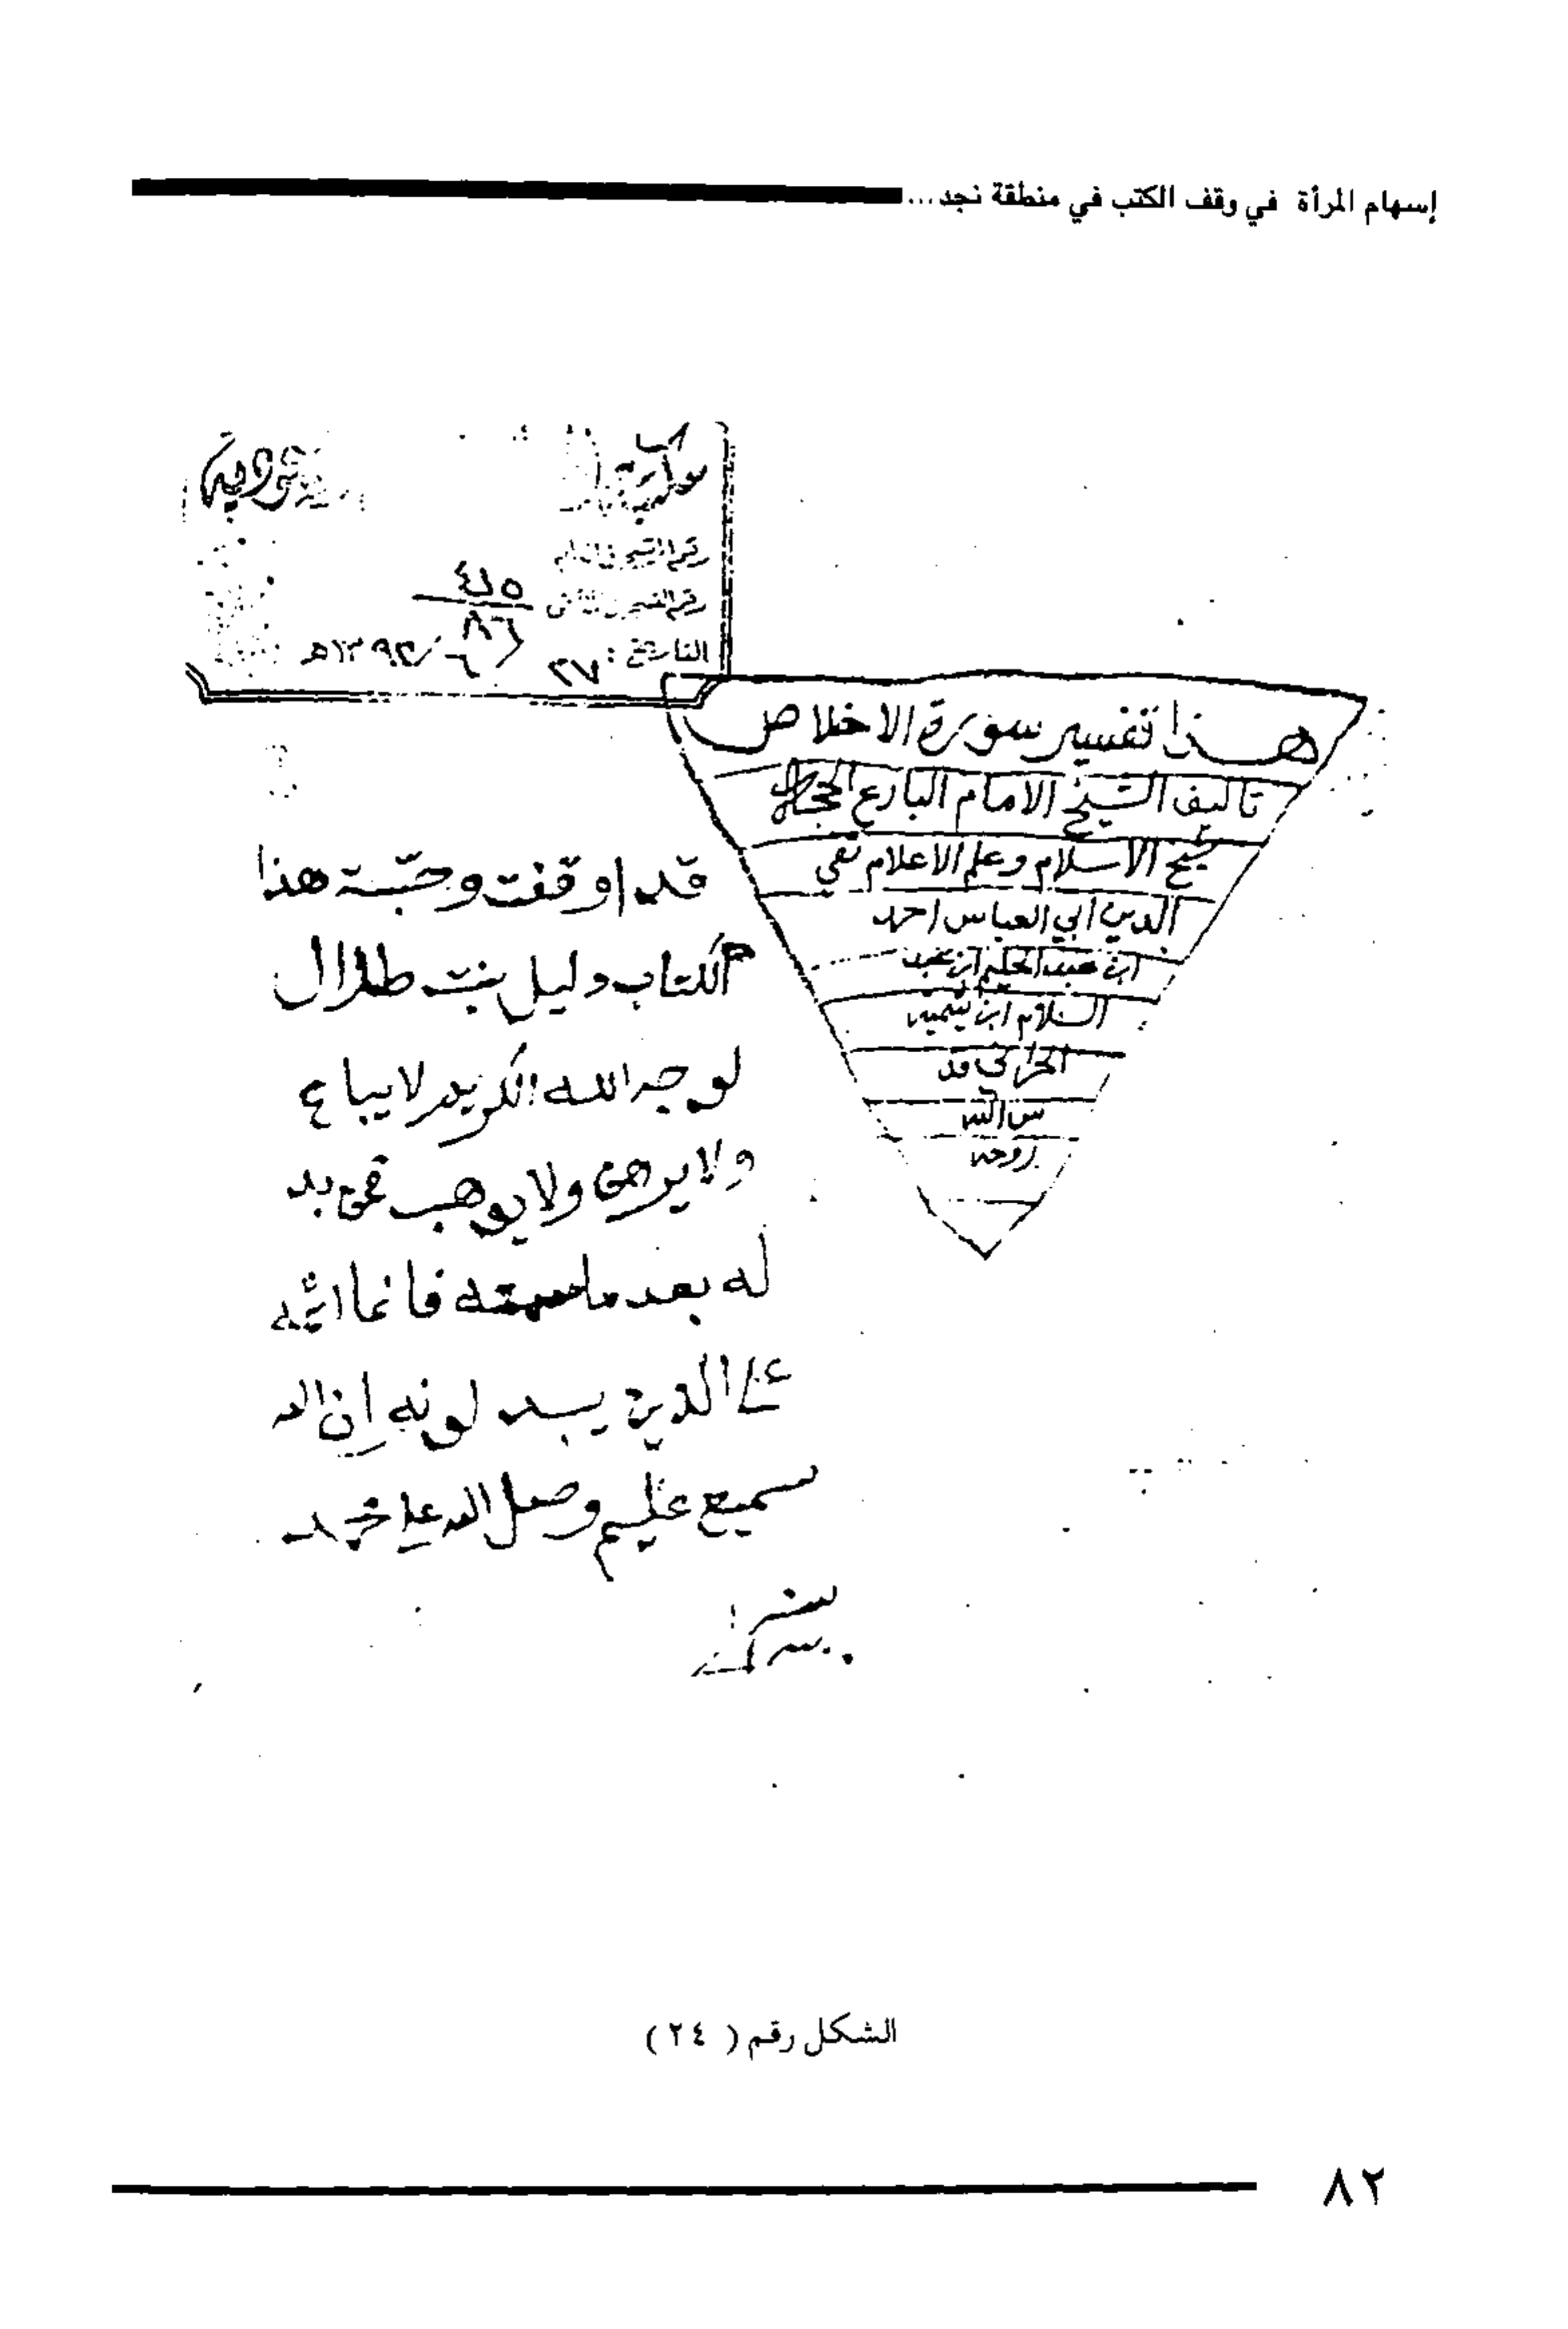 إسهام المرأة في وقف الكتب في منطقة نجد...
التاريخ: ٢٧ / ٦ / ١٣٩٢هـ
٨٦
هذا تفسير سورة الاخلاص
تاليف الشيخ الامام البارع الحجة
شيخ الاسلام وعلم الاعلام تقي
الدين ابي العباس احمد
ابن عبد الحليم ابن عبد
السلام ابن تيمية
الحراني قد
س الله
روحه
قد اوقفت وحبسة هذا
الكتاب دليل بنت طلال
لوجه الله الكريم لا يباع
ولا يرهن ولا يوهب فمن بد
له بعد ما سمعه فانما اثمه
على الذين يبدلونه إن الله
سميع عليم وصل الله على محمد
الشكل رقم ( ٢٤ )
٨٢